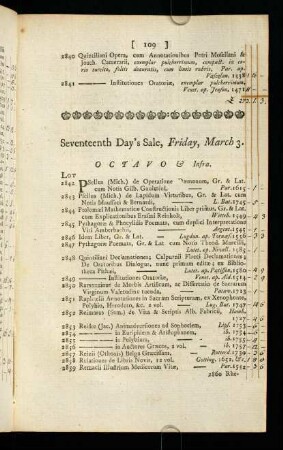 [ 109 ]
2840 Quintiliani Opera, cum Annotationibus Petri Mosellani &
Joach. Camerarii, exemplar pulcherrimum, compact. in co-
rio turcico, foliis deauratis, cum lineis rubris, Par. ap.
Vascosan. 1538
2841 Institutiones Oratoriæ, exemplar pulcherrimum,
Venet. ap. Jenson. 1471
Seventeenth Day's Sale, Friday, March 3.
OCTAVO & Infra.
LOT
2842 Psellus (Mich.) de Operatione Dæmonum, Gr. & Lat.
cum Notis Gilb. Gaulmini, Par. 1615
2843 Psellus (Mich.) de Lapidum Virtutibus, Gr. & Lat. cum
Notis Maussaci & Bernardi, L. Bat. 1745
2844 Ptolomæi Mathematicæ Constructionis Liber primus, Gr. & Lat.
cum Explicationibus Erasmi Reinholt, Witteb. 1549
2845 Pythagoræ & Phocylidis Poemata, cum duplici Interpretatione
Viti Amerbachii, Argent. 1545
2846 Idem Liber, Gr. & Lat. Lugdun. ap. Tornæs. 1556
2847 Pythagoræ Poemata, Gr. & Lat. cum Notis Theod. Marcilii,
Lutet. ap. Nivell. 1585
2848 Quintiliani Declamationes; Calpurnii Flacci Declamationes;
De Oratoribus Dialogus, nunc primum edita; ex Bibliothe-
theca Pithæi, Lutet. ap. Patisson. 1580
2849 Institutiones Oratoriæ, Venet. ap. Ald. 1514
2850 Ramazzini de Morbis Artificum, ac Dissertatio de Sacrarum
Virginum Valetudine tuenda, Patav. 1713
2851 Raphelii Annotationes in Sacram Scripturam, ex Xenophonte,
Polybio, Herodoto, &c. 2 vol. Lug. Bat. 1747
2852 Reimarus (Sam.) de Vita & Scriptis Alb. Fabricii, Hamb.
1737
2853 Reiske (Jac.) Animadversiones ad Sophoclem, Lips. 1753
2854 in Euripidem & Aristophanem, ib. 1754
2855 in Polybium, ib. 1755
2856 in Auctores Græcos, 2 vol. ib. 1757
2857 Reinii (Othonis) Belga Græcissans, Roterod. 1730
2858 Relationes de Libris Novis, 12 vol. Gotting. 1752, &c.
2859 Remacli Illustrium Medicorum Vitæ, Par. 1542
2860 Rhe-